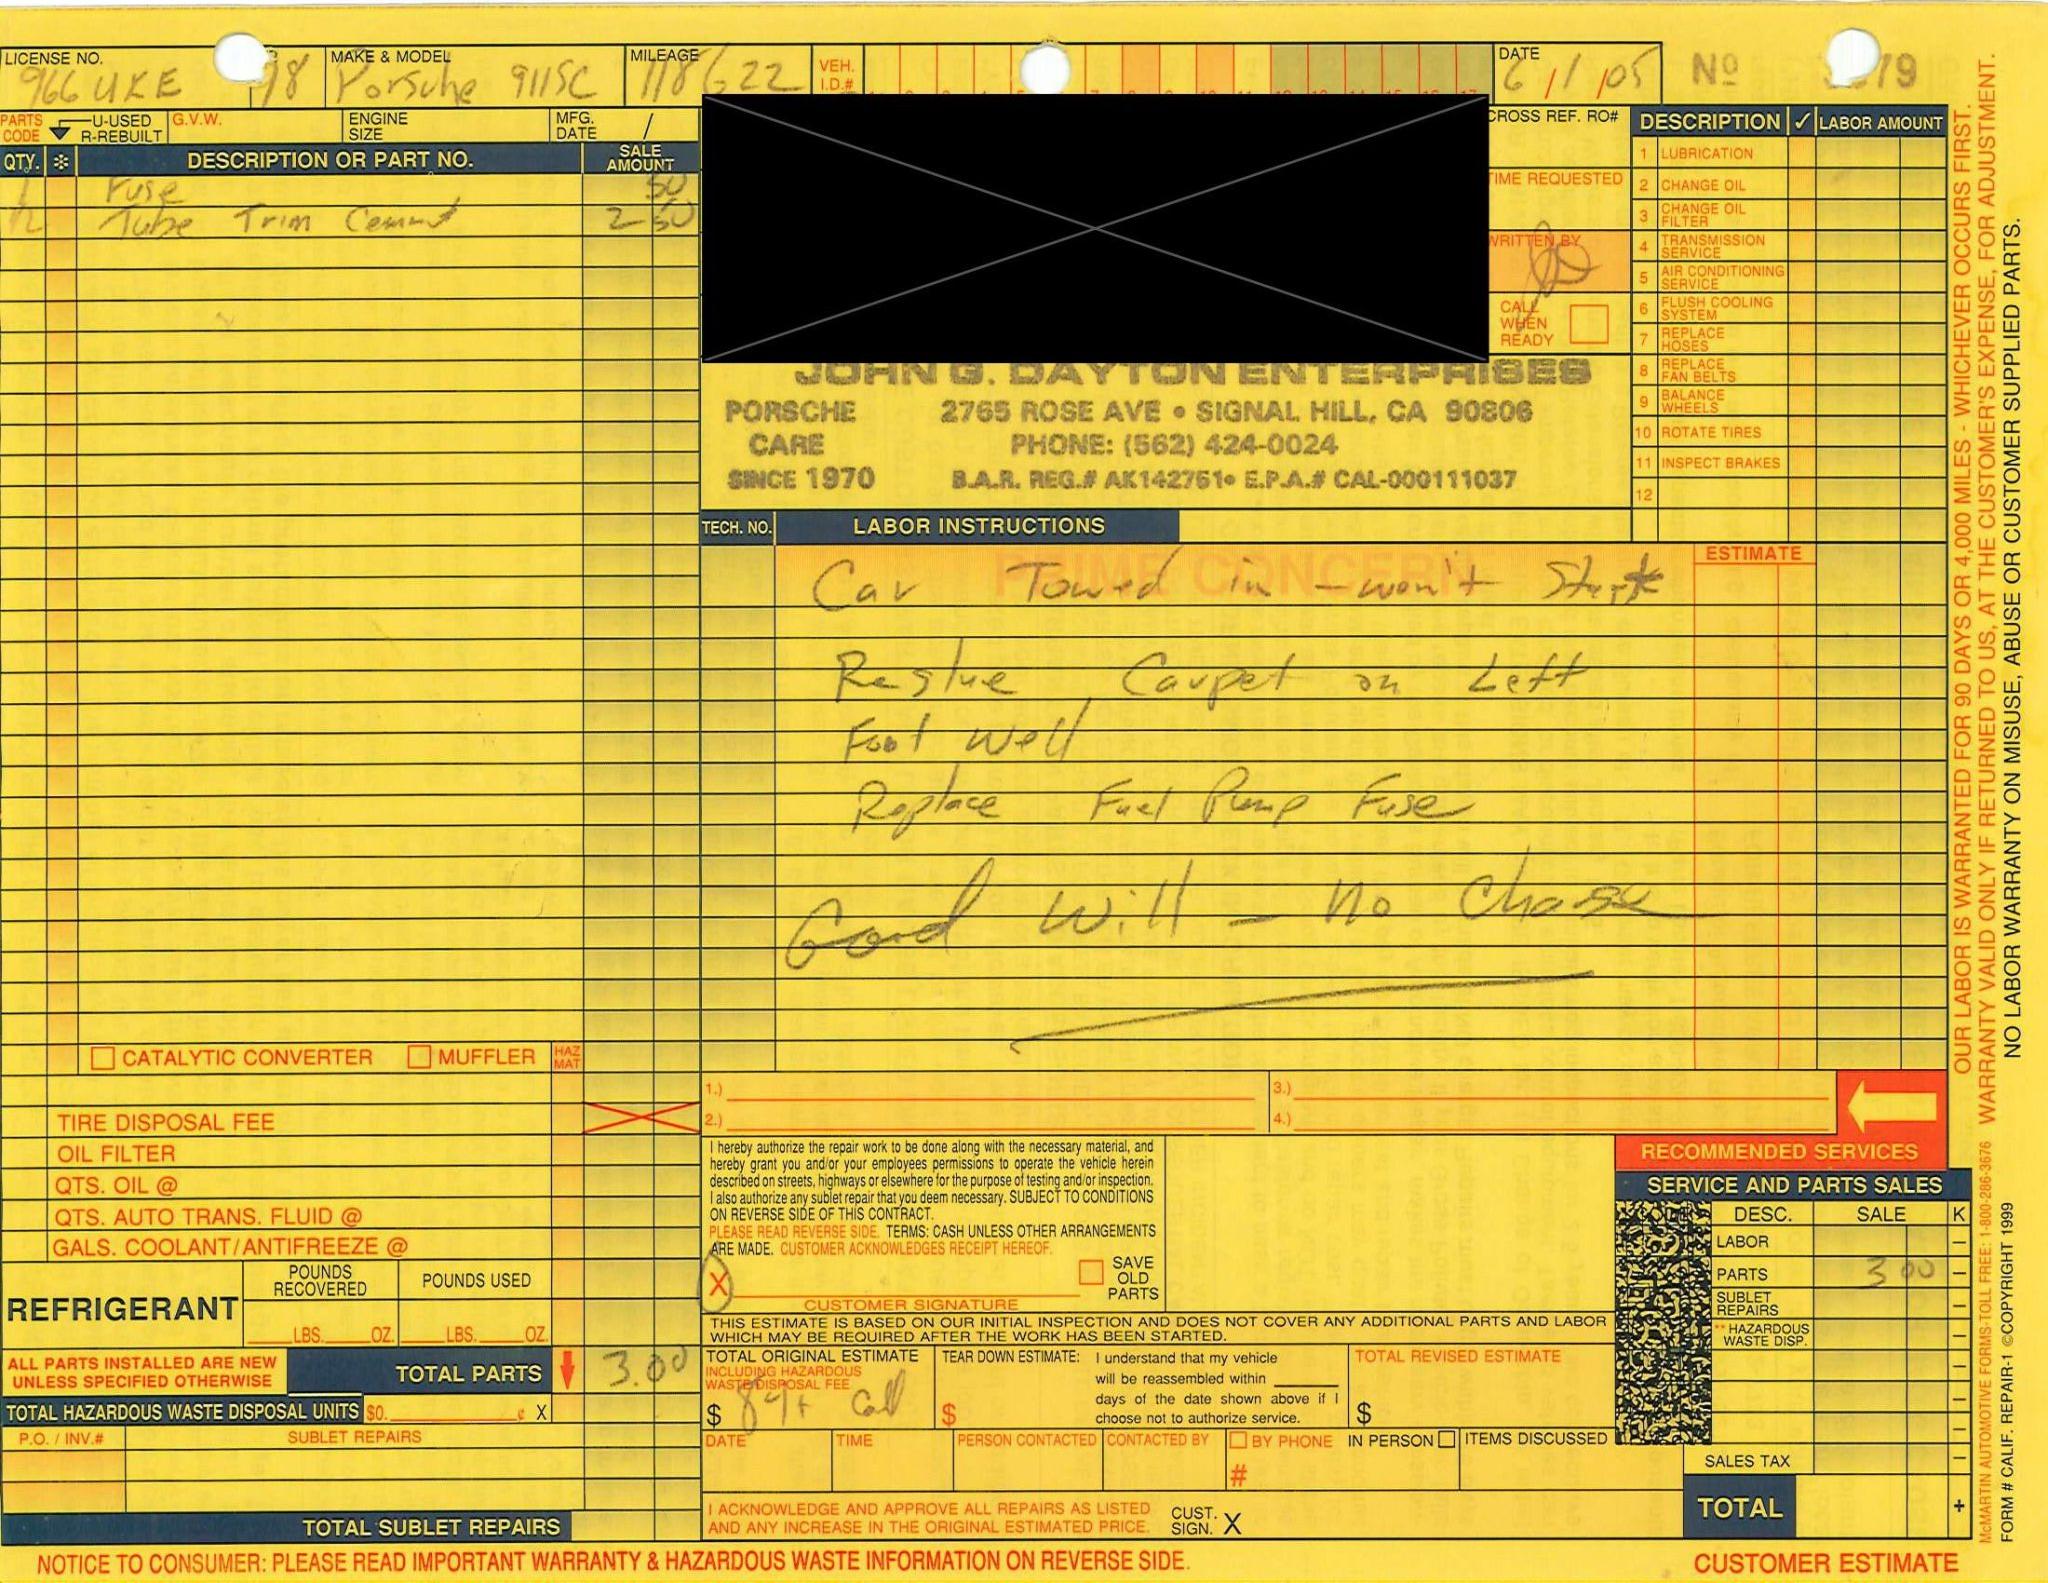 LICENSE NO.
966 UKE
78
MAKE & MODEL
Porsche 911SC
MILEAGE
118622
VEH.
I.D.#
DATE
6/1/05
No
79
PARTS
CODE
U-USED
R-REBUILT
G.V.W.
ENGINE
SIZE
MFG.
DATE /
QTY. ✻ DESCRIPTION OR PART NO. SALE
AMOUNT
1 Fuse 50
1/2 Tube Trim Cement 2 50
CROSS REF. RO#
TIME REQUESTED
WRITTEN BY
CALL
WHEN
READY
DESCRIPTION ✓ LABOR AMOUNT
1 LUBRICATION
2 CHANGE OIL
3 CHANGE OIL
FILTER
4 TRANSMISSION
SERVICE
5 AIR CONDITIONING
SERVICE
6 FLUSH COOLING
SYSTEM
7 REPLACE
HOSES
8 REPLACE
FAN BELTS
9 BALANCE
WHEELS
10 ROTATE TIRES
11 INSPECT BRAKES
12
JOHN G. DAYTON ENTERPRISES
PORSCHE 2765 ROSE AVE • SIGNAL HILL, CA 90806
CARE PHONE: (562) 424-0024
SINCE 1970 B.A.R. REG.# AK142751• E.P.A.# CAL-000111037
TECH. NO. LABOR INSTRUCTIONS
PRIME CONCERN
ESTIMATE
Car Towed in - won't Start
Reglue Carpet on Left
Foot Well
Replace Fuel Pump Fuse
Good Will - no Charge
CATALYTIC CONVERTER MUFFLER HAZ
MAT
TIRE DISPOSAL FEE
OIL FILTER
QTS. OIL @
QTS. AUTO TRANS. FLUID @
GALS. COOLANT/ANTIFREEZE @
REFRIGERANT
POUNDS
RECOVERED
POUNDS USED
LBS. OZ. LBS. OZ.
ALL PARTS INSTALLED ARE NEW
UNLESS SPECIFIED OTHERWISE
TOTAL PARTS 3.00
TOTAL HAZARDOUS WASTE DISPOSAL UNITS $0. ¢ X
P.O. / INV.# SUBLET REPAIRS
TOTAL SUBLET REPAIRS
1.)
2.)
3.)
4.)
I hereby authorize the repair work to be done along with the necessary material, and
hereby grant you and/or your employees permissions to operate the vehicle herein
described on streets, highways or elsewhere for the purpose of testing and/or inspection.
I also authorize any sublet repair that you deem necessary. SUBJECT TO CONDITIONS
ON REVERSE SIDE OF THIS CONTRACT.
PLEASE READ REVERSE SIDE. TERMS: CASH UNLESS OTHER ARRANGEMENTS
ARE MADE. CUSTOMER ACKNOWLEDGES RECEIPT HEREOF.
X
CUSTOMER SIGNATURE
SAVE
OLD
PARTS
THIS ESTIMATE IS BASED ON OUR INITIAL INSPECTION AND DOES NOT COVER ANY ADDITIONAL PARTS AND LABOR
WHICH MAY BE REQUIRED AFTER THE WORK HAS BEEN STARTED.
TOTAL ORIGINAL ESTIMATE
INCLUDING HAZARDOUS
WASTE DISPOSAL FEE
$ 89+ Call
TEAR DOWN ESTIMATE:
$
I understand that my vehicle
will be reassembled within
days of the date shown above if I
choose not to authorize service.
TOTAL REVISED ESTIMATE
$
DATE TIME PERSON CONTACTED CONTACTED BY BY PHONE IN PERSON ITEMS DISCUSSED
#
I ACKNOWLEDGE AND APPROVE ALL REPAIRS AS LISTED
AND ANY INCREASE IN THE ORIGINAL ESTIMATED PRICE.
CUST.
SIGN. X
RECOMMENDED SERVICES
SERVICE AND PARTS SALES
DESC. SALE K
LABOR –
PARTS 3 00 –
SUBLET
REPAIRS –
**HAZARDOUS
WASTE DISP. –
SALES TAX –
TOTAL +
OUR LABOR IS WARRANTED FOR 90 DAYS OR 4,000 MILES - WHICHEVER OCCURS FIRST.
WARRANTY VALID ONLY IF RETURNED TO US, AT THE CUSTOMER'S EXPENSE, FOR ADJUSTMENT.
NO LABOR WARRANTY ON MISUSE, ABUSE OR CUSTOMER SUPPLIED PARTS.
McMARTIN AUTOMOTIVE FORMS-TOLL FREE: 1-800-286-3676
FORM # CALIF. REPAIR-1 ©COPYRIGHT 1999
NOTICE TO CONSUMER: PLEASE READ IMPORTANT WARRANTY & HAZARDOUS WASTE INFORMATION ON REVERSE SIDE.
CUSTOMER ESTIMATE